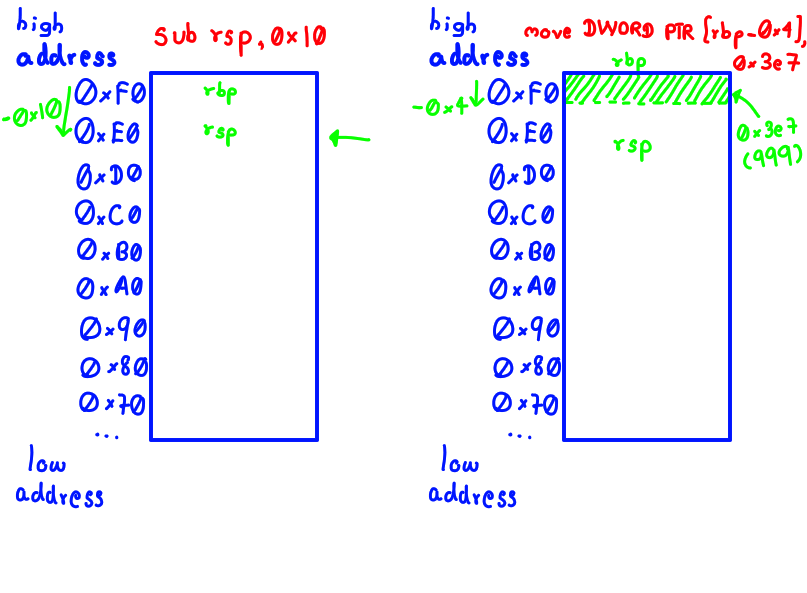 high
address
sub rsp, 0x10
-0x10
0xF0
rbp
0xE0
rsp
0xD0
0xC0
0xB0
0xA0
0x90
0x80
0x70
...
low
address
high
address
move DWORD PTR [rbp-0x4],
0x3e7
rbp
-0x4
0xF0
0xE0
rsp
0x3e7
(999)
0xD0
0xC0
0xB0
0xA0
0x90
0x80
0x70
...
low
address